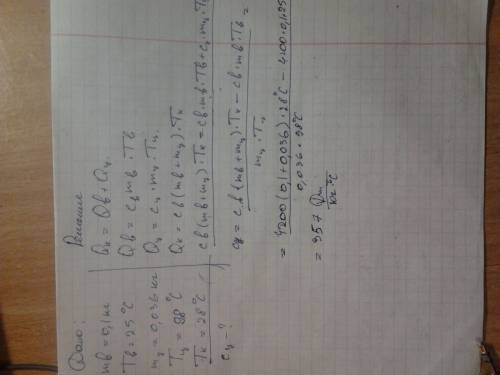 Дано:
mв = 0,1 кг
Tв = 25 °C
mц = 0,036 кг
Tц = 98 °C
Tк = 28 °C
cц - ?
Решение
Qк = Qв + Qц
Qв = cв mв · Tв
Qц = cц · mц · Tц
Qк = cв (mв + mц) · Tк
cв (mв + mц) · Tк = cв · mв · Tв + cц · mц · T
cц = cв (mв + mц) · Tк - cв · mв · Tв =
mц · Tц
= 4200 (0,1 + 0,036) · 28 °C - 4200 · 0,1
0,036 · 98 °C
= 957 Дж
кг °C